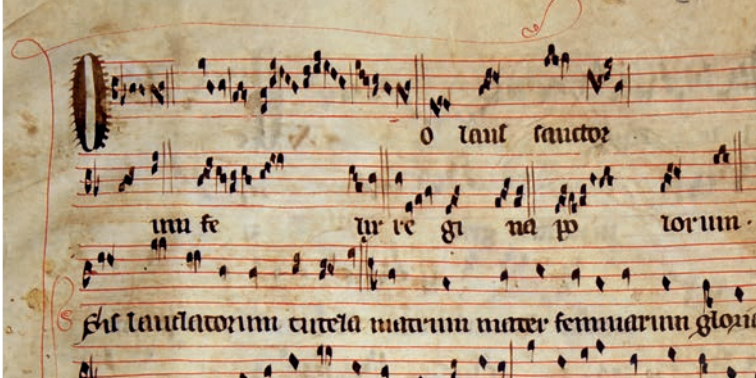 O o laus sanctor
um fe lix re gi na po lorum.
Sis laudatorum tutela matrum mater feminarum gloria